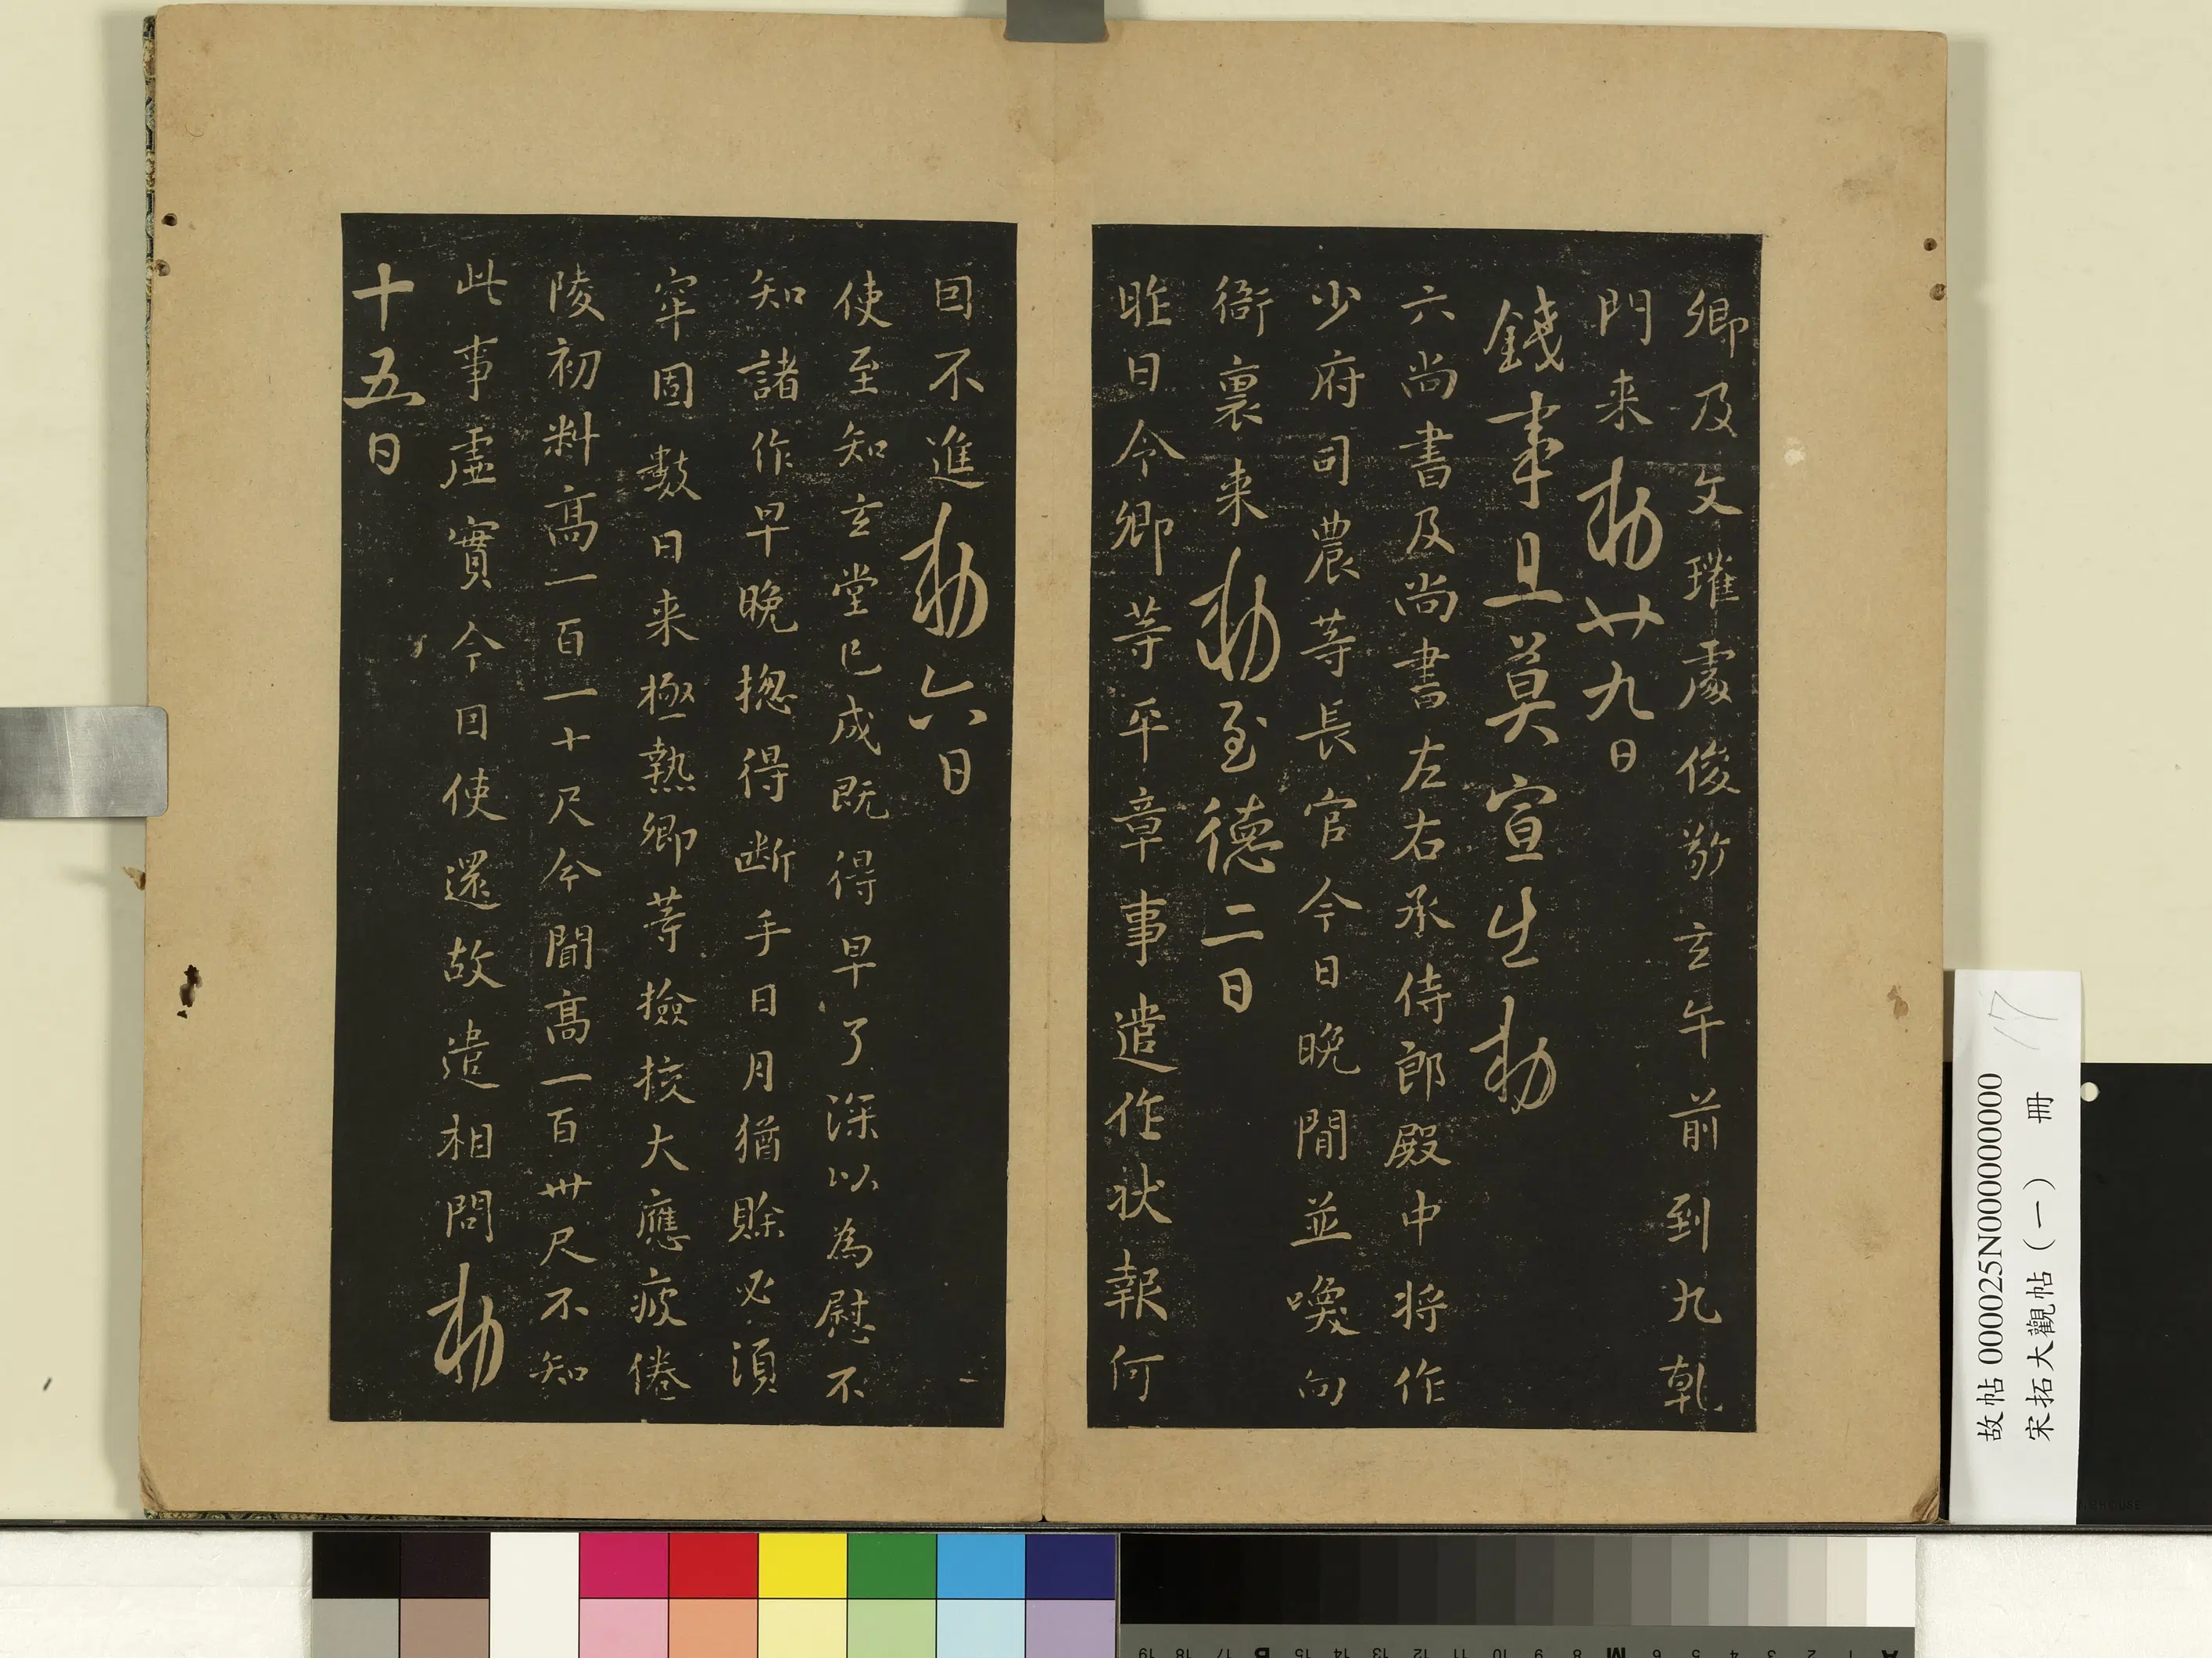 卿及文瓘處俊敬玄午前到九乹
門来勅廿九日
錢事且莫宣出勅
六尚書及尚書左右承侍郎殿中将作
少府司農等長官今日晚間並喚向
衙裏来勅至德二日
昨日令卿等平章事遣作状報何
因不進勅六日
使至知玄堂已成既得早了深以為慰不
知諸作早晚揔得断手日月猶賒必須
牢固數日来極熱卿等撿挍大應疲倦
陵初料高一百一十尺今聞高一百卅尺不知
此事虛實今日使還故遣相問勅
十五日
故帖 000025N000000000
宋拓大觀帖（一） 冊
17